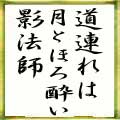 道連れは
月とほろ酔い
影法師